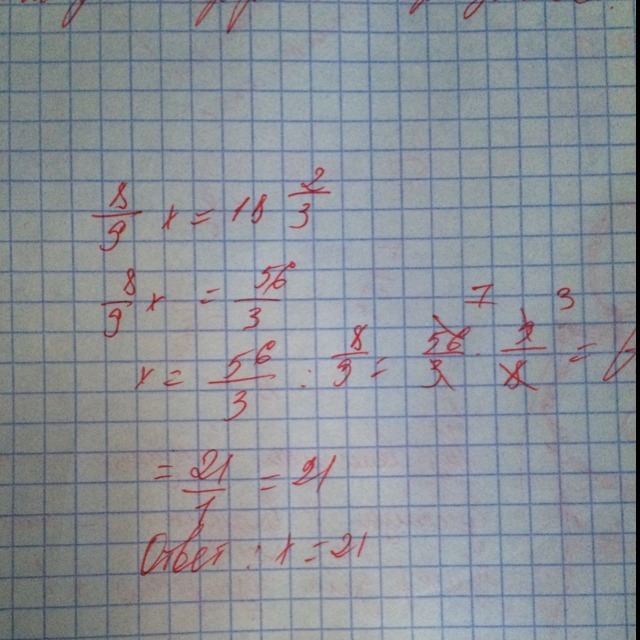 8/9 x = 18 2/3
8/9 x = 56/3
x = 56/3 : 8/9 = 56/3 · 9/8 =
7 3
= 21/1 = 21
Ответ: x = 21